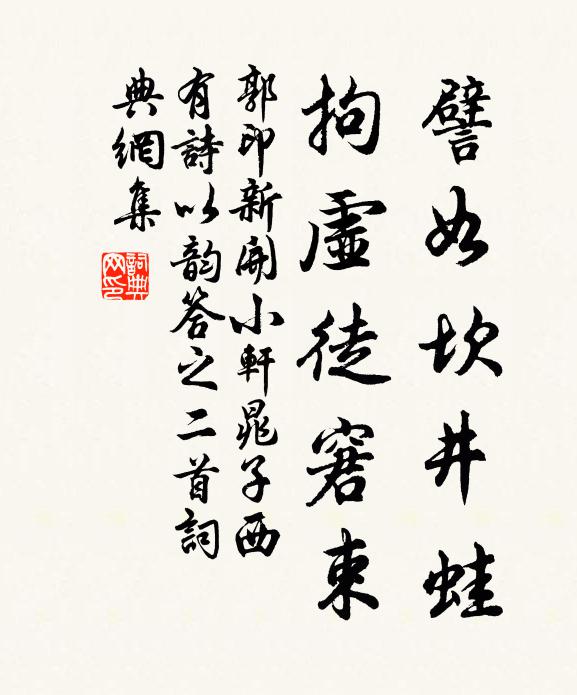 譬如坎井蛙
拘虛徒窘束
郭印新開小軒晁子西
有詩以韵答之二首詞
典網集
詞典网印